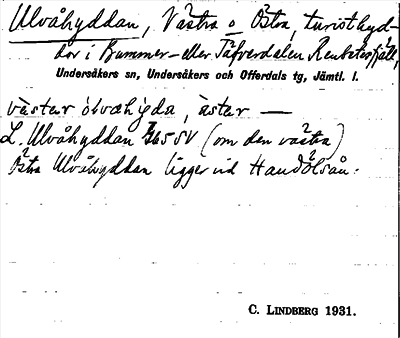 Ulvåhyddan, Västra o Östra, turisthyd-
dor i Bummer- eller Täfverdalen Renbetesfjäll,
Undersåkers sn, Undersåkers och Offerdals tg, Jämtl. l.
västar ólvahyda, ástar —
L. Ulvåhyddan 65 SV (om den västra)
Östra Ulvåhyddan ligger vid Handölsån.
C. LINDBERG 1931.